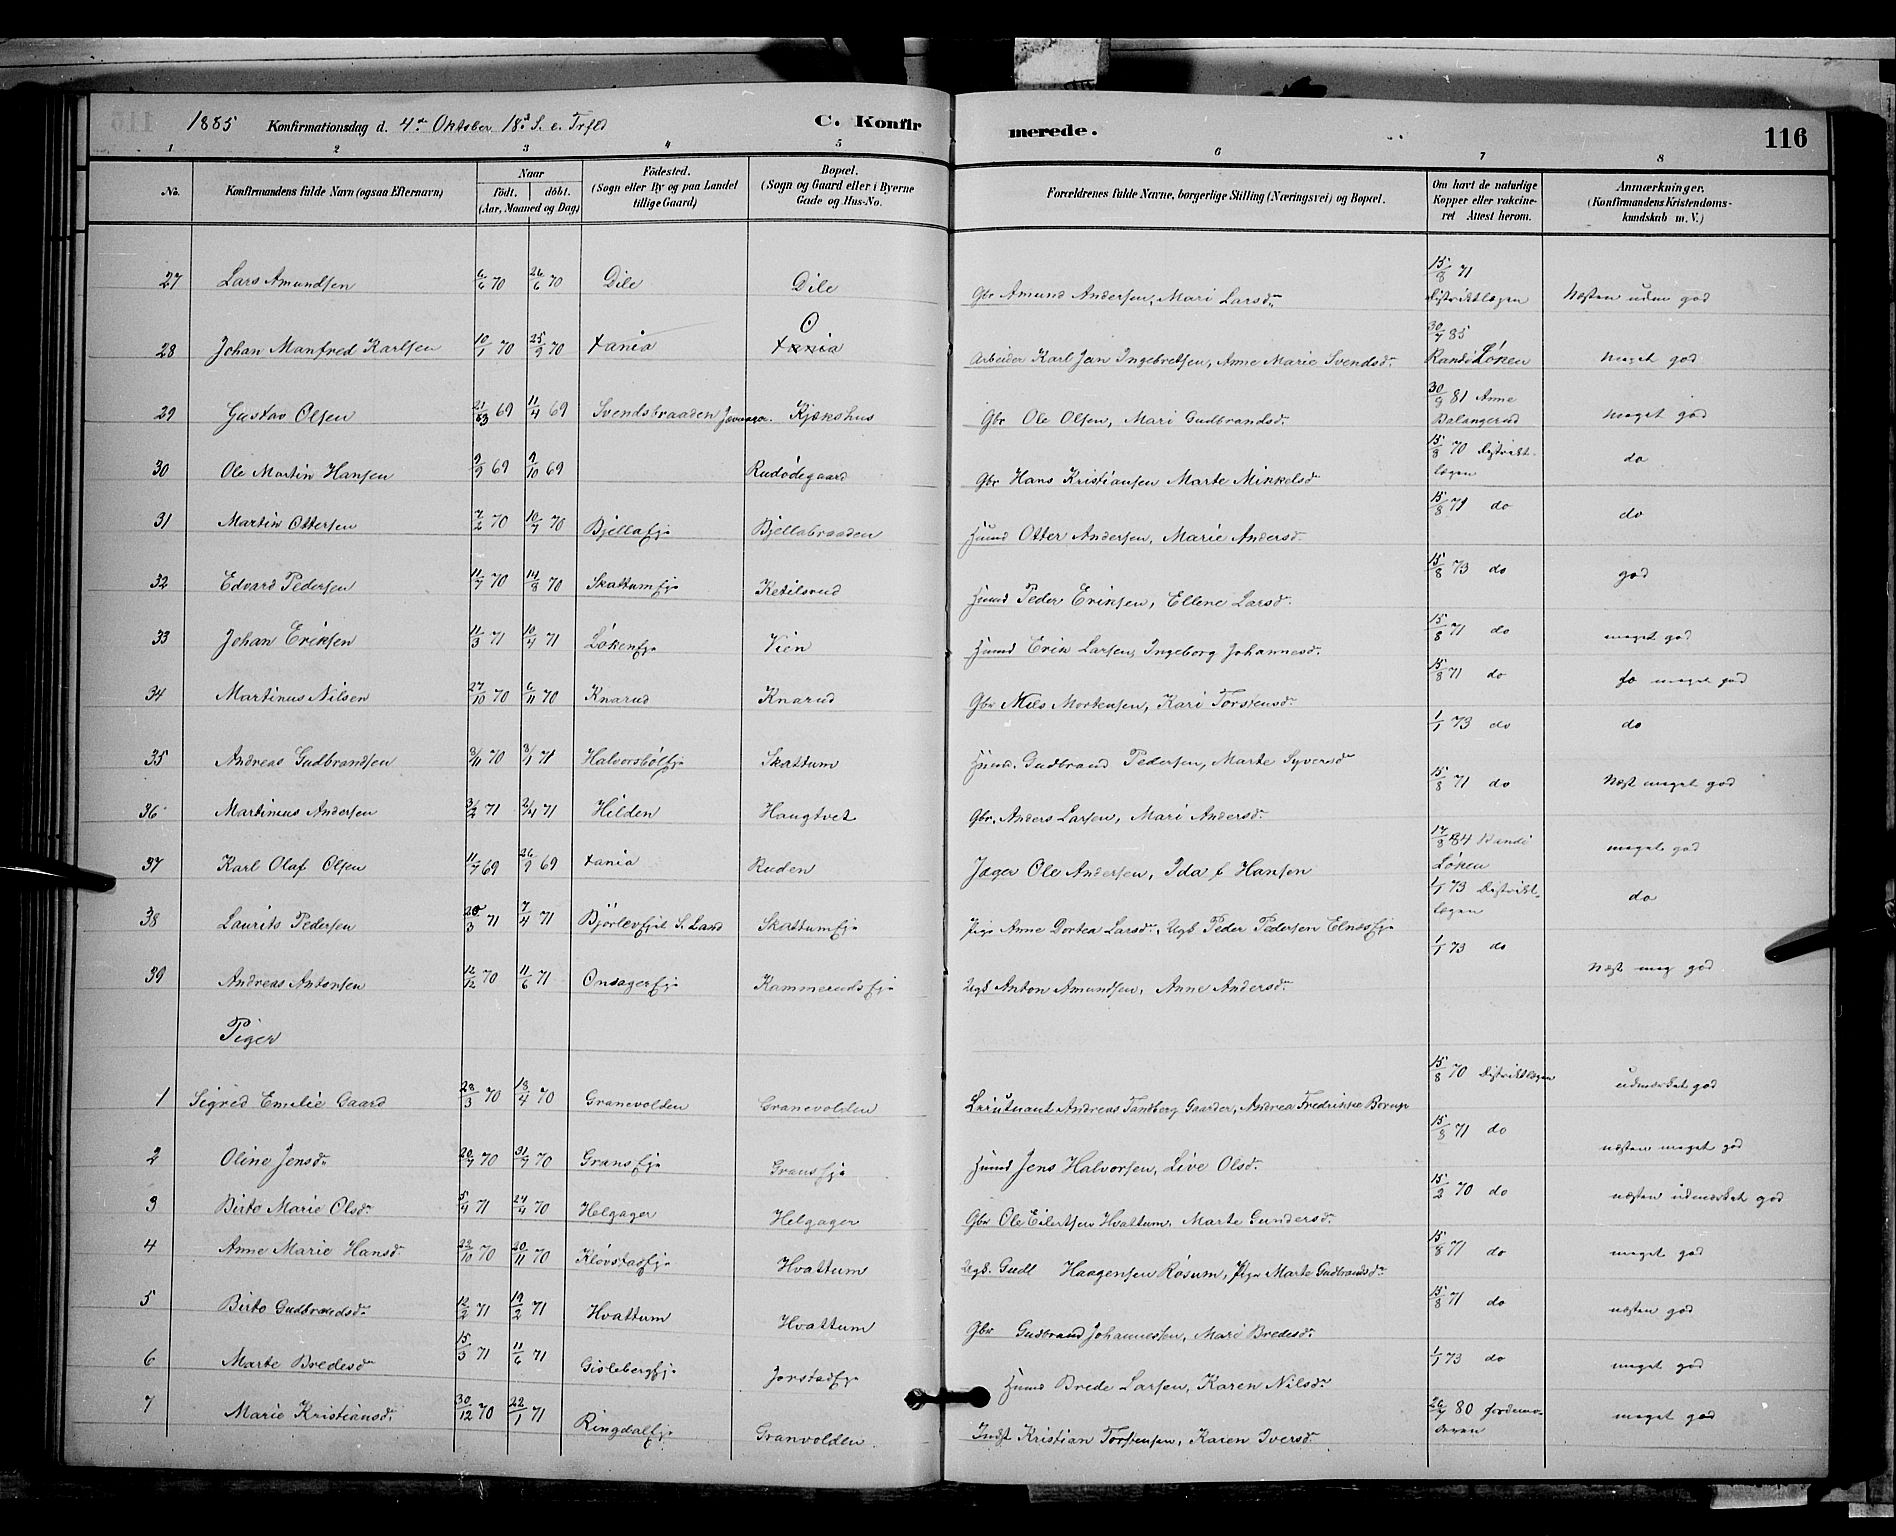 1885 Konfirmationsdag d. 4de Oktober 18d. S. e. Trfld C. Konfirmerede. 116
1 2 3 4 5 6 7 8
No. Konfirmandens fulde Navn (ogsaa Efternavn) Naar født. døbt. (Aar, Maaned og Dag) Fødested. (Sogn eller By og paa Landet tillige Gaard) Bopæl. (Sogn og Gaard eller i Byerne Gade og Hus-No. Forældrenes fulde Navne, borgerlige Stilling (Næringsvei) og Bopæl. Om havt de naturlige Kopper eller vakcineret Attest herom. Anmærkninger. (Konfirmandens Kristendomskundskab m. V.)
27 Lars Amundsen 6/6 70 26/6 70 Dile Dile Gbr Amund Andersen, Mari Larsd. 15/8 71 Distriktlægen Næsten udm god
28 Johan Manfred Karlsen 10/1 70 25/9 70 Xania Xania Arbeider Karl Jan Ingebretsen, Anne Marie Svendsd. 30/7 85 Randi Løken meget god
29 Gustav Olsen 21/3 69 11/4 69 Svendsbraaden Jævnager Kjækshus Gbr Ole Olsen, Mari Gudbrandsd. 30/9 81 Anne Dalangerud meget god
30 Ole Martin Hansen 9/9 69 9/10 69 Rudødegaard Gbr Hans Kristiansen Marte Mikkelsd 15/8 70 Distriktlægen do
31 Martin Ottersen 7/2 70 10/7 70 Bjellaeje Bjellabraaden Huusmd Otter Andersen, Marie Andersd. 15/8 71 do do
32 Edvard Pedersen 11/7 70 14/8 70 Skattumeje Ketilsrud Huusmd Peder Eriksen, Ellene Larsd. 15/8 73 do god
33 Johan Eriksen 11/3 71 10/4 71 Løkeneje Vien Huusmd Erik Larsen, Ingeborg Johannesd. 15/8 71 do meget god
34 Martinus Nilsen 27/10 70 6/11 70 Knarud Knarud Gbr Niels Mortensen, Kari Torstensd. 15/8 71 do meget god
35 Andreas Gudbrandsen 3/11 70 3/1 71 Halvorsbøleje Skattum Huusmd. Gudbrand Pedersen, Marte Syversd 1/1 73 do do
36 Martinus Andersen 3/2 71 2/4 71 Hilden Haugtvet Gbr. Anders Larsen, Mari Andersd. 15/8 71 do Næst meget god
37 Karl Olaf Olsen 11/7 69 26/9 69 Xania Ruden Jæger Ole Andersen, Ida f Hansen 17/8 84 Randi Løken meget god
38 Laurits Pedersen 20/3 71 7/4 71 Bjørleveje S. Land Skattumeje Pige Anne Dortea Larsd., Ugb Peder Pedersen Elnæseje 1/1 73 Distriktlægen do
39 Andreas Antonsen 12/12 70 11/6 71 Onsagereje Kammerudseje Ugb Anton Amundsen, Anne Andersd. 1/1 73 do Næst meg god
Piger
1 Sigrid Emelie Gaard 28/3 70 18/4 70 Granevolden Granevolden Lieutnant Andreas Tandberg Gaarder, Andrea Fredrikke Borup 15/8 70 Distriktlægen udmærket god
2 Oline Jensd. 20/7 70 31/7 70 Granseje Granseje Huusmd Jens Halvorsen, Live Olsd. 15/8 71 do næsten meget god
3 Birte Marie Olsd. 5/4 71 24/4 70 Helgager Helgager Gbr Ole Eilertsen Hvattum, Marte Gundersd. 15/2 70 do næsten udmærket god
4 Anne Marie Hansd. 22/10 70 20/11 70 Kløvstadeje Hvattum Ugb. Gudl Haagensen Røsum, Pige Marte Gudbrandsd. 15/8 71 do meget god
5 Birte Gudbrandsd. 12/2 71 19/2 71 Hvattum Hvattum Gbr Gudbrand Johannessen, Mari Bredesd. 15/8 71 do næsten god
6 Marte Bredesd 15/3 71 11/6 71 Gislebergeje Jorstadeje Huusmd Brede Larsen, Karen Nilsd. 1/1 73 do meget god
7 Marie Kristiansd. 30/12 70 22/1 71 Ringdaleje Granvolden. Indst Kristian Torstensen, Karen Iversd. 26/7 80 meget god